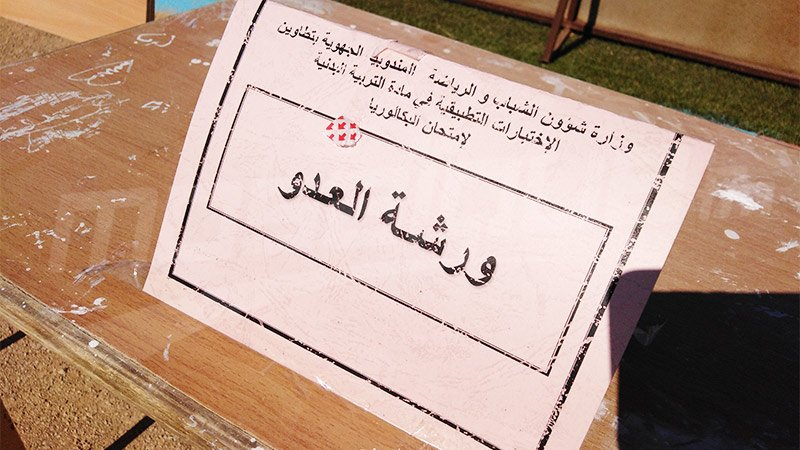 وزارة شؤون الشباب و الرياضة المندوبية الجهوية بتطاوين
الإختبارات التطبيقية في مادة التربية البدنية
لإمتحان البكالوريا
ورشة العدو